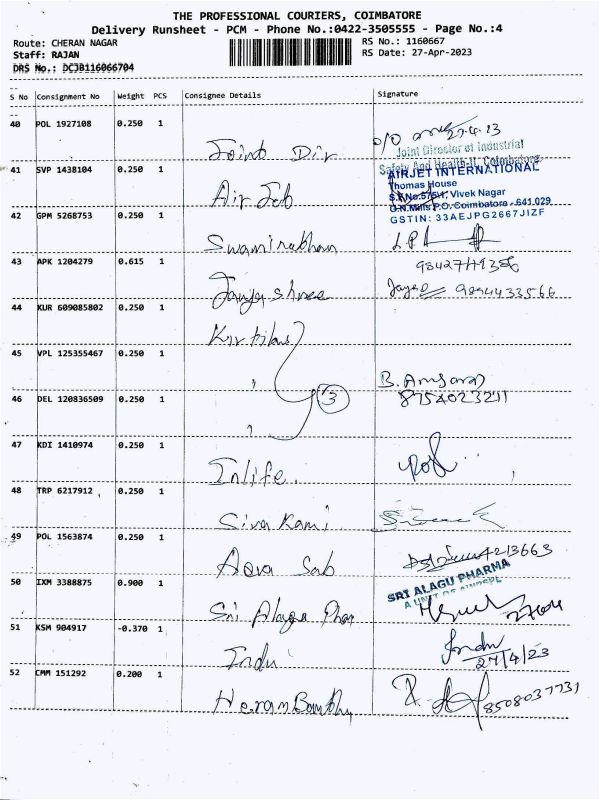 THE PROFESSIONAL COURIERS, COIMBATORE
Delivery Runsheet - PCM - Phone No.:0422-3505555 - Page No.:4
Route: CHERAN NAGAR
RS No.: 1160667
Staff: RAJAN
RS Date: 27-Apr-2023
DRS No.: DCJB116066704
S No Consignment No Weight PCS Consignee Details Signature
40 POL 1927108 0.250 1
27.4.23
Joint Dir
Joint Director of Industrial
Safety And Health-II, Coimbatore
41 SVP 1438104 0.250 1
AIRJET INTERNATIONAL
Thomas House
Air Jeb
S.F.No.575/1, Vivek Nagar
U.N.Mills P.O. Coimbatore - 641 029
42 GPM 5268753 0.250 1
GSTIN: 33AEJPG2667J1ZF
43 APK 1204279 0.615 1
Jayashree
9894433566
44 KUR 609085802 0.250 1
45 VPL 125355467 0.250 1
"
B.
46 DEL 120836509 0.250 1
3
8754023211
"
47 KDI 1410974 0.250 1
Inlife.
48 TRP 6217912 0.250 1
Siva Kami
49 POL 1563874 0.250 1
50 IXM 3388875 0.900 1
SRI ALAGU PHARMA
Sri Alagu Phar
51 KSM 904917 -0.370 1
Indu
Indu
27/4/23
52 CMM 151292 0.200 1
8508037731